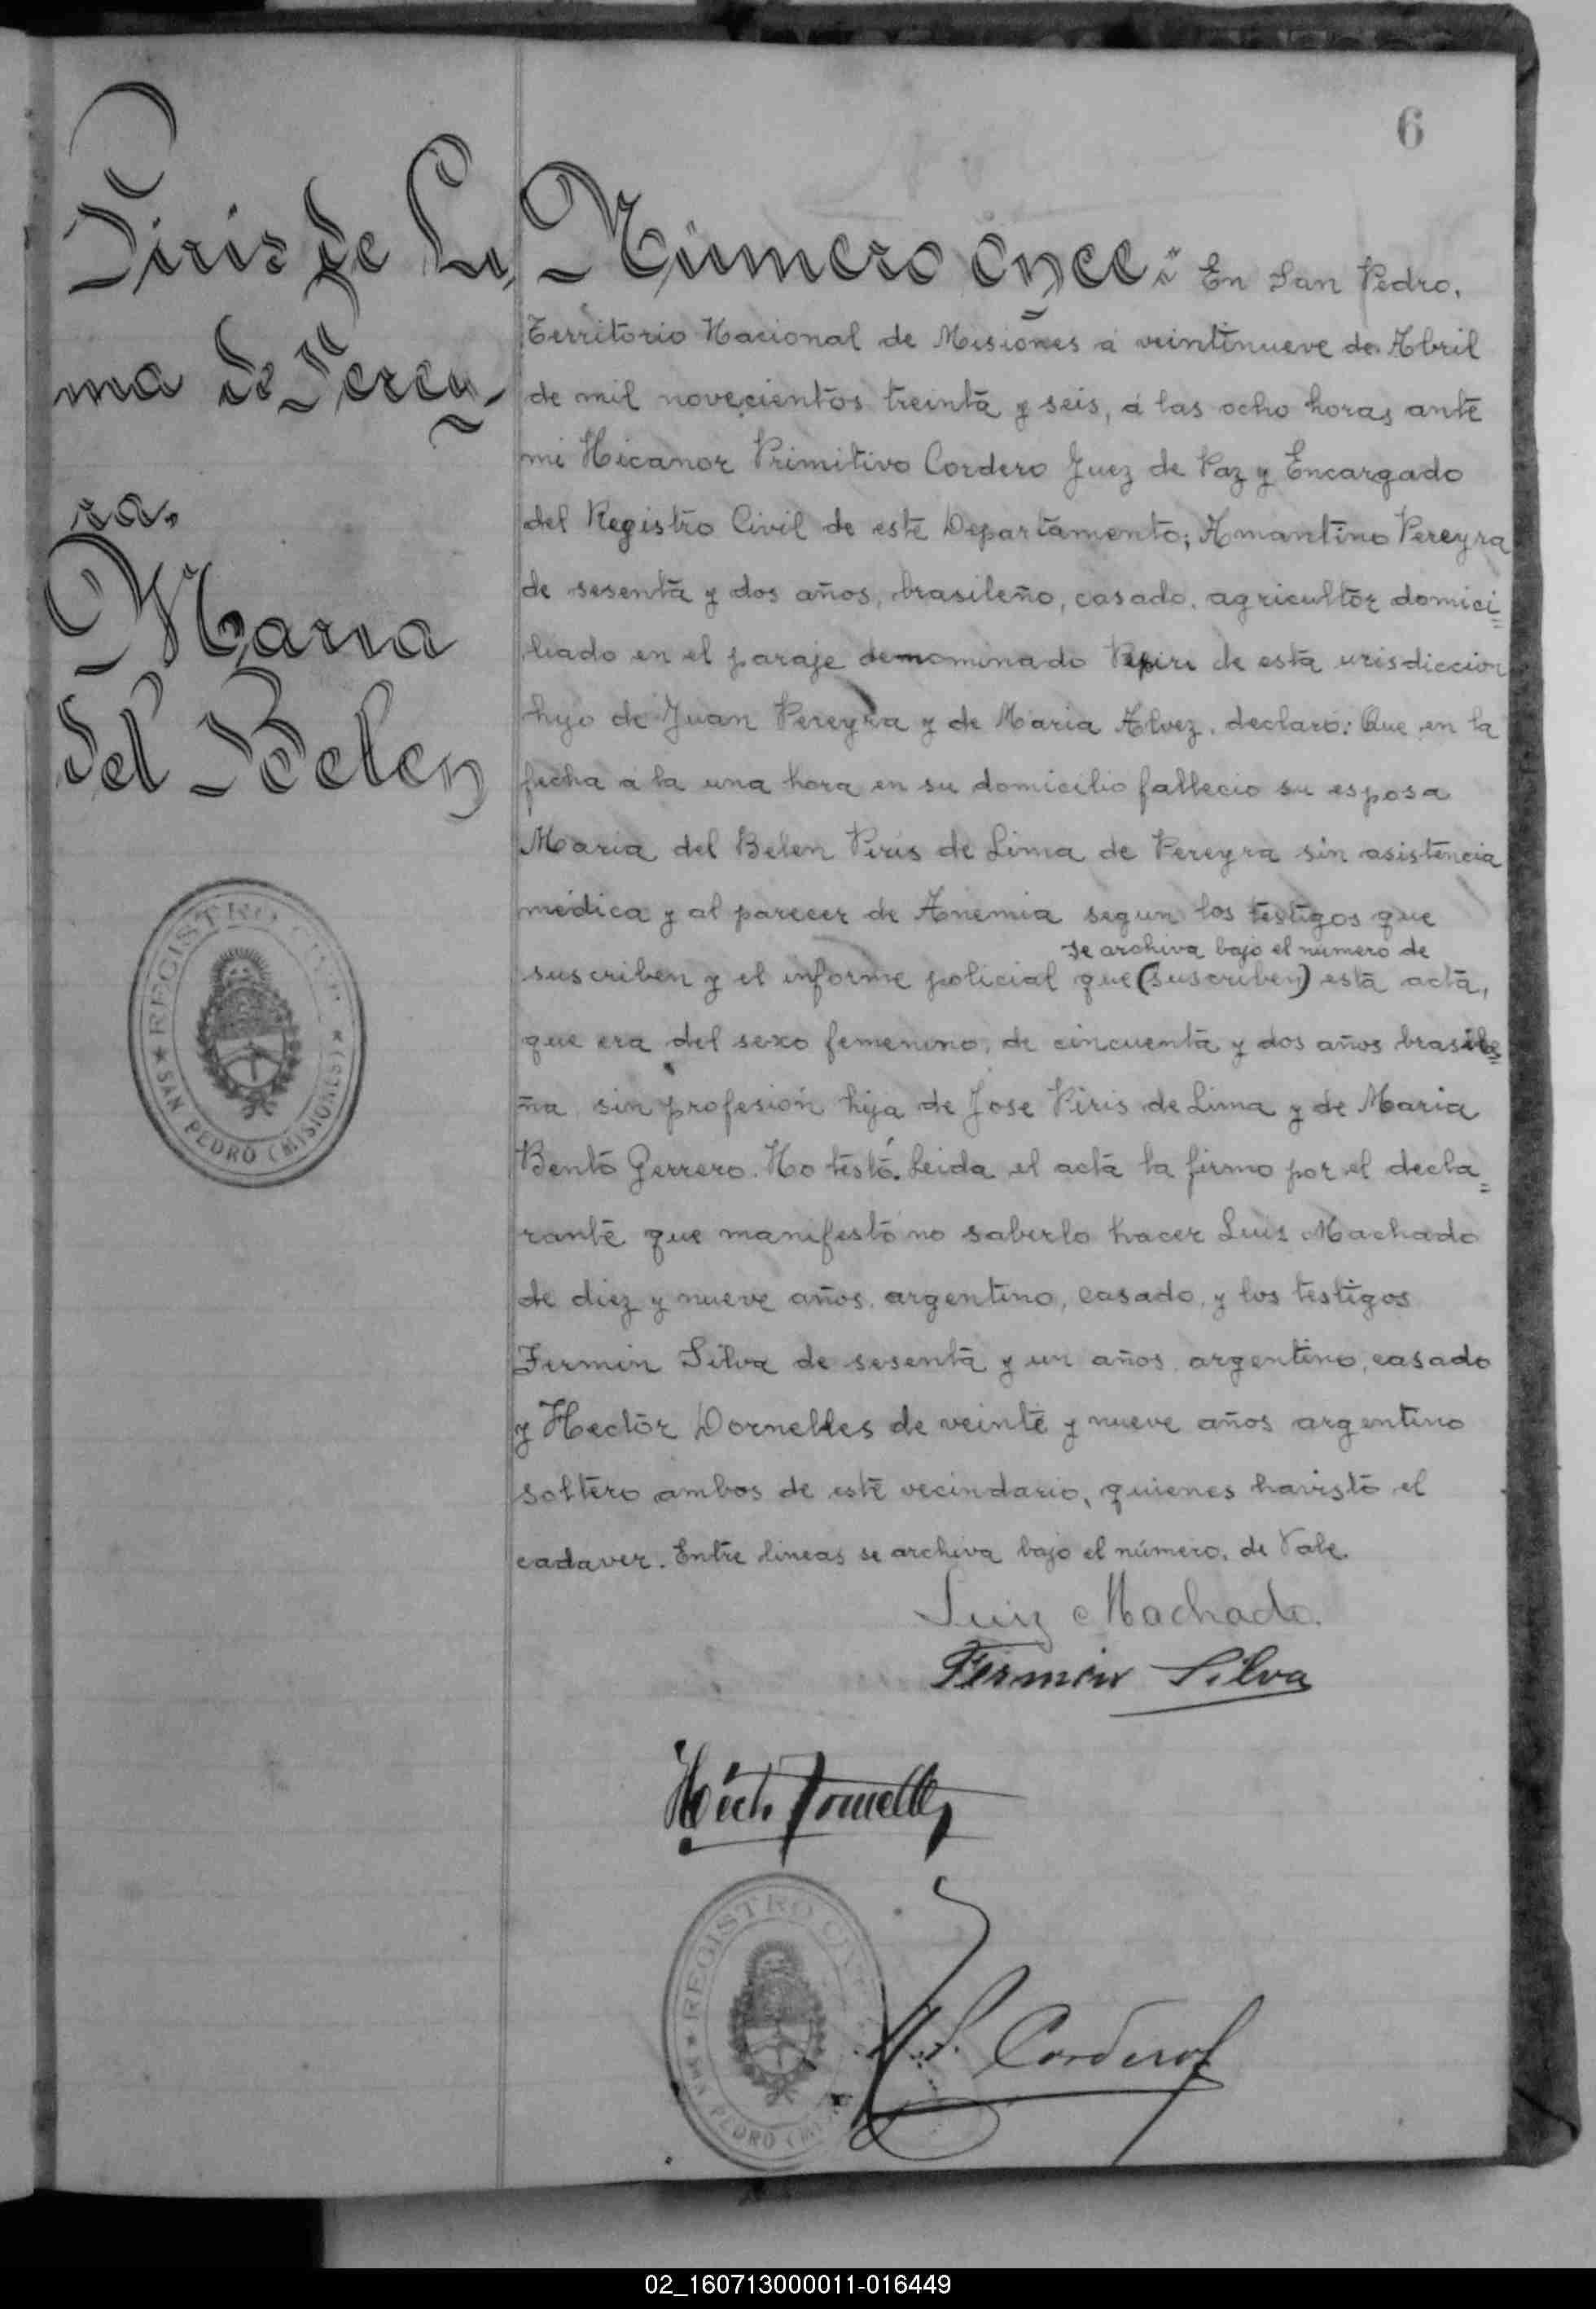 6
Piris de Li
ma de Perey-
ra.
Maria
del Belen
Número once: En San Pedro,
Territorio Nacional de Misiones á veintinueve de Abril
de mil novecientos treinta y seis, á las ocho horas ante
mi Nicanor Primitivo Cordero Juez de Paz y Encargado
del Registro Civil de este Departamento; Amantino Pereyra
de sesenta y dos años, brasileño, casado, agricultor domici=
liado en el paraje denominado Pepiri de esta urisdiccion
hijo de Juan Pereyra y de Maria Alvez, declaró: Que en la
fecha á la una hora en su domicilio fallecio su esposa
Maria del Belen Piris de Lima de Pereyra sin asistencia
médica y al parecer de Anemia segun los testigos que
se archiva bajo el número de
suscriben y el informe policial que (suscriben) esta acta,
que era del sexo femenino, de cincuenta y dos años brasile=
ña sin profesión hija de Jose Piris de Lima y de Maria
Bento Gerrero. No testó. Leida el acta la firmo por el decla=
rante que manifestó no saberlo hacer Luis Machado
de diez y nueve años, argentino, casado, y los testigos
Fermin Silva de sesenta y un años argentino, casado
y Hector Dornelles de veinte y nueve años argentino
soltero ambos de este vecindario, quienes ha visto el
cadaver. Entre lineas se archiva bajo el número, de Vale.
Luiz Machado.
Fermin Silva
Héctr Dornelles
N. P. Cordero
REGISTRO CIVIL
SAN PEDRO (MISIONES)
REGISTRO CIVIL
SAN PEDRO (MI
02_160713000011-016449